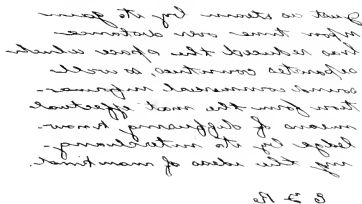 Just as steam by its gain
time over distance
has reduced the space which
separates countries, so will
sound commercial informa-
tion form the most effectual
means of diffusing know-
ledge by its interchang-
ing the ideas of mankind.